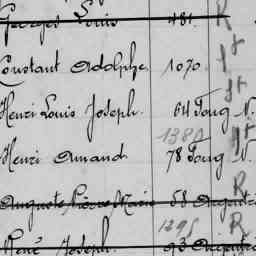 Georges Louis 481. R
Constant Adolphe. 1070. ft
Henri Louis Joseph. 64 Foug N. ft
1380
Henri Amand. 78 Foug N. ft
Auguste Pierre Marie 58 R
1295
René Joseph. 93 R